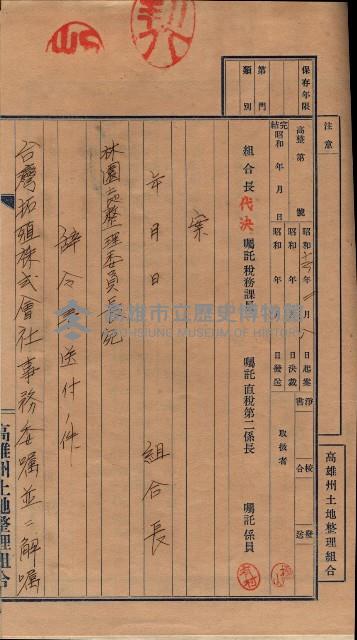 注意
高雄州土地整理組合
保存年限
第 門
類別
高整第 號
完結昭和 年 月 日
昭和 年 月 八 日起案
昭和 年 月 日決裁
昭和 年 月 日發送
淨書
校合
發送
取扱者
組合長 代決 囑託稅務課長 囑託直稅第二係長 囑託係員
案
年 月 日
組合長
林園區整理委員長宛
辭令送付ノ件
台灣拓殖株式會社事務委囑並ニ解囑
高雄州土地整理組合
高雄市立歷史博物館
KAOHSIUNG MUSEUM OF HISTORY